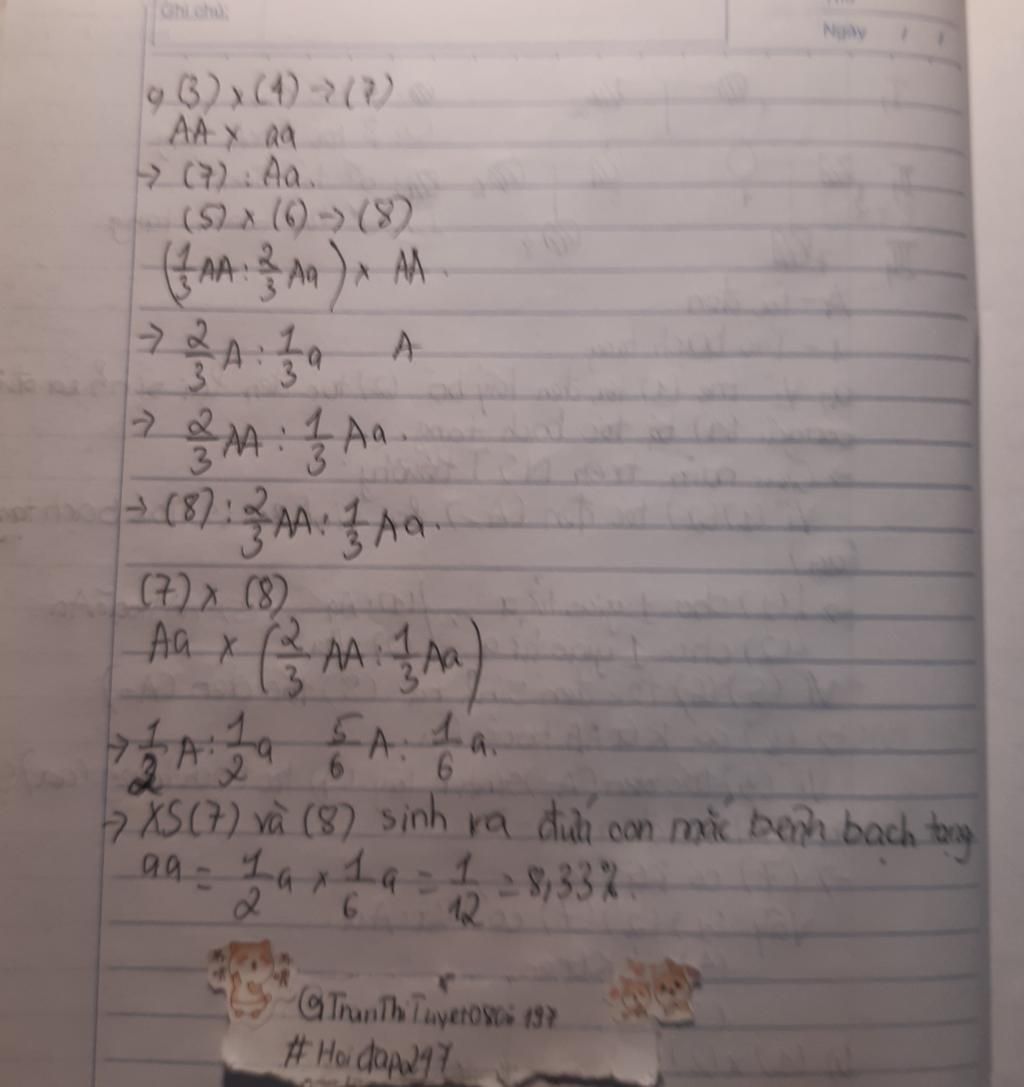 Ghi chú:
Ngày / /
c, (3) x (4) → (7)
AA x aa
→ (7) : Aa.
(5) x (6) → (8)
(1/3 AA : 2/3 Aa) x AA.
→ 2/3 A : 1/3 a A
→ 2/3 AA : 1/3 Aa.
→ (8) : 2/3 AA : 1/3 Aa.
(7) x (8)
Aa x (2/3 AA : 1/3 Aa)
→ 1/2 A : 1/2 a 5/6 A : 1/6 a.
→ XS (7) và (8) sinh ra đứa con mắc bệnh bạch tạng
aa = 1/2 a x 1/6 a = 1/12 = 8,33%.
#Hoidap247